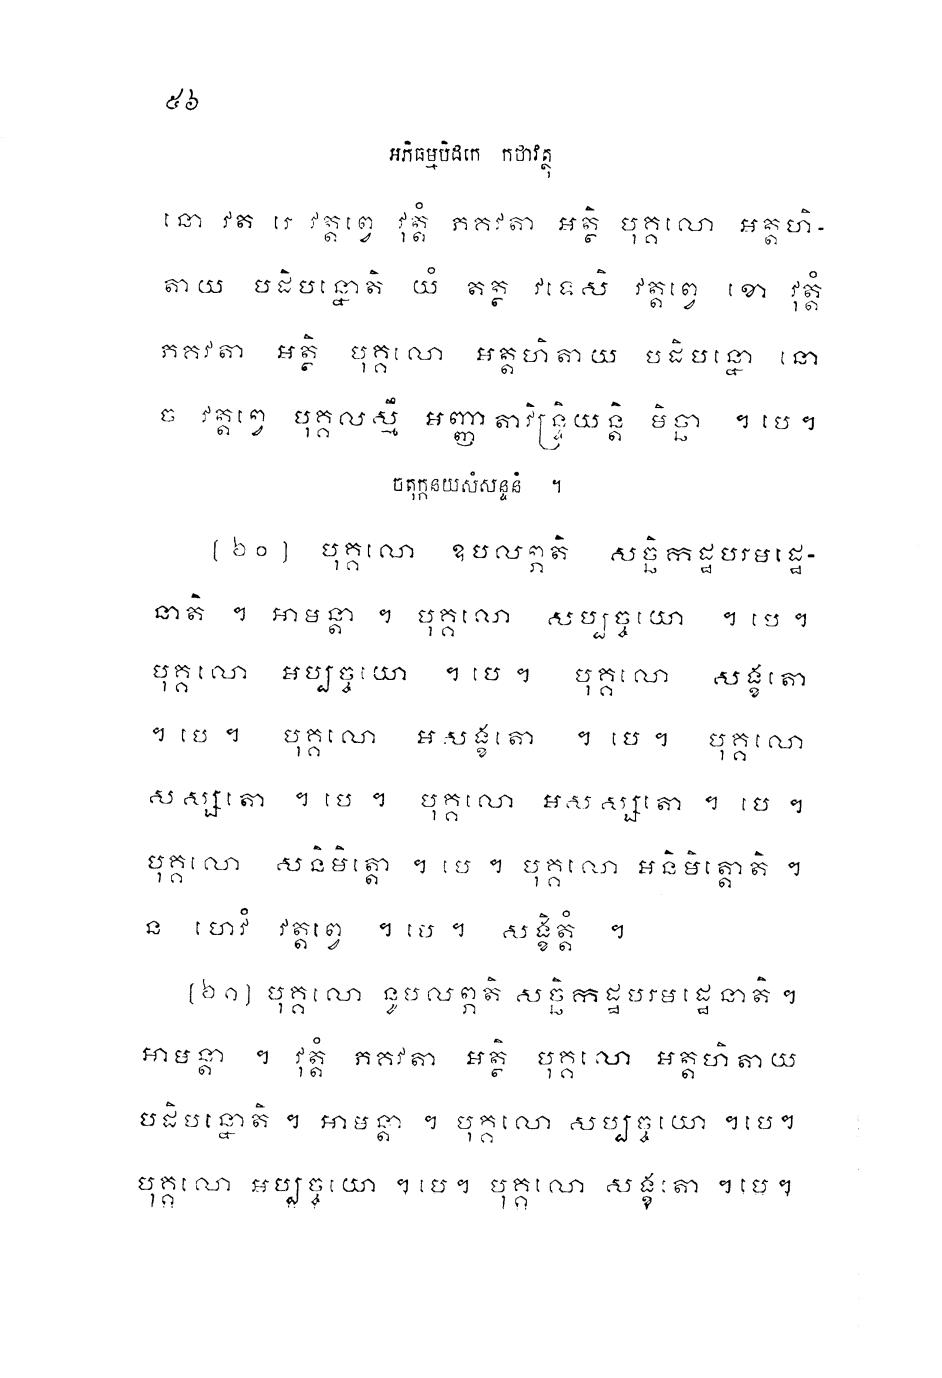 ៥៦
អភិធម្មបិដកេ កថាវត្ថុ
នោ វត រេ វត្តព្វេ វុត្តំ ភគវតា អត្ថិ បុគ្គលោ អត្តហិ-
តាយ បដិបន្នោតិ យំ តត្ថ វទេសិ វត្តព្វេ ខោ វុត្តំ
ភគវតា អត្ថិ បុគ្គលោ អត្តហិតាយ បដិបន្នោ នោ
ច វត្តព្វេ បុគ្គលស្មឹ អញ្ញាតាវិន្ទ្រិយន្តិ មិច្ឆា ។ បេ។
ចតុក្កនយសំសន្ទនំ ។
(៦០) បុគ្គលោ ឧបលព្ភតិ សច្ឆិកដ្ឋបរមដ្ឋេ-
នាតិ ។ អាមន្តា ។ បុគ្គលោ សប្បច្ចយោ ។ បេ ។
បុគ្គលោ អប្បច្ចយោ ។ បេ ។ បុគ្គលោ សង្ខតោ
។ បេ ។ បុគ្គលោ អសង្ខតោ ។ បេ ។ បុគ្គលោ
សស្សតោ ។ បេ ។ បុគ្គលោ អសស្សតោ ។ បេ ។
បុគ្គលោ សនិមិត្តោ ។ បេ ។ បុគ្គលោ អនិមិត្តោតិ ។
ន ហេវំ វត្តព្វេ ។ បេ ។ សង្ខិត្តំ ។
(៦១) បុគ្គលោ នូបលព្ភតិ សច្ឆិកដ្ឋបរមដ្ឋេនាតិ ។
អាមន្តា ។ វុត្តំ ភគវតា អត្ថិ បុគ្គលោ អត្តហិតាយ
បដិបន្នោតិ ។ អាមន្តា ។ បុគ្គលោ សប្បច្ចយោ ។បេ។
បុគ្គលោ អប្បច្ចយោ ។បេ។ បុគ្គលោ សង្ខតោ ។បេ។